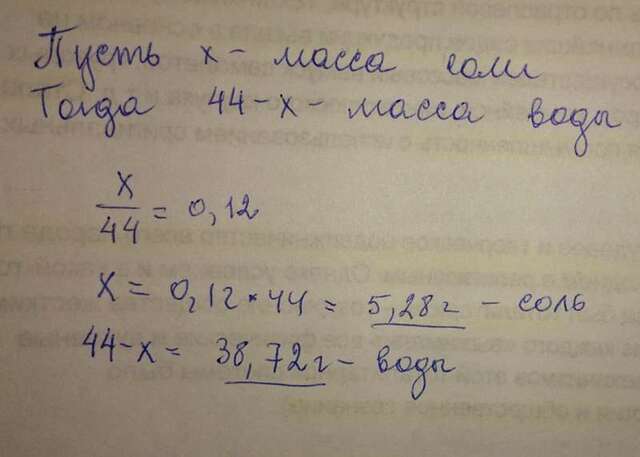 Пусть x - масса соли
Тогда 44-x - масса воды
x/44 = 0,12
x = 0,12*44 = 5,28г - соль
44-x = 38,72г - воды